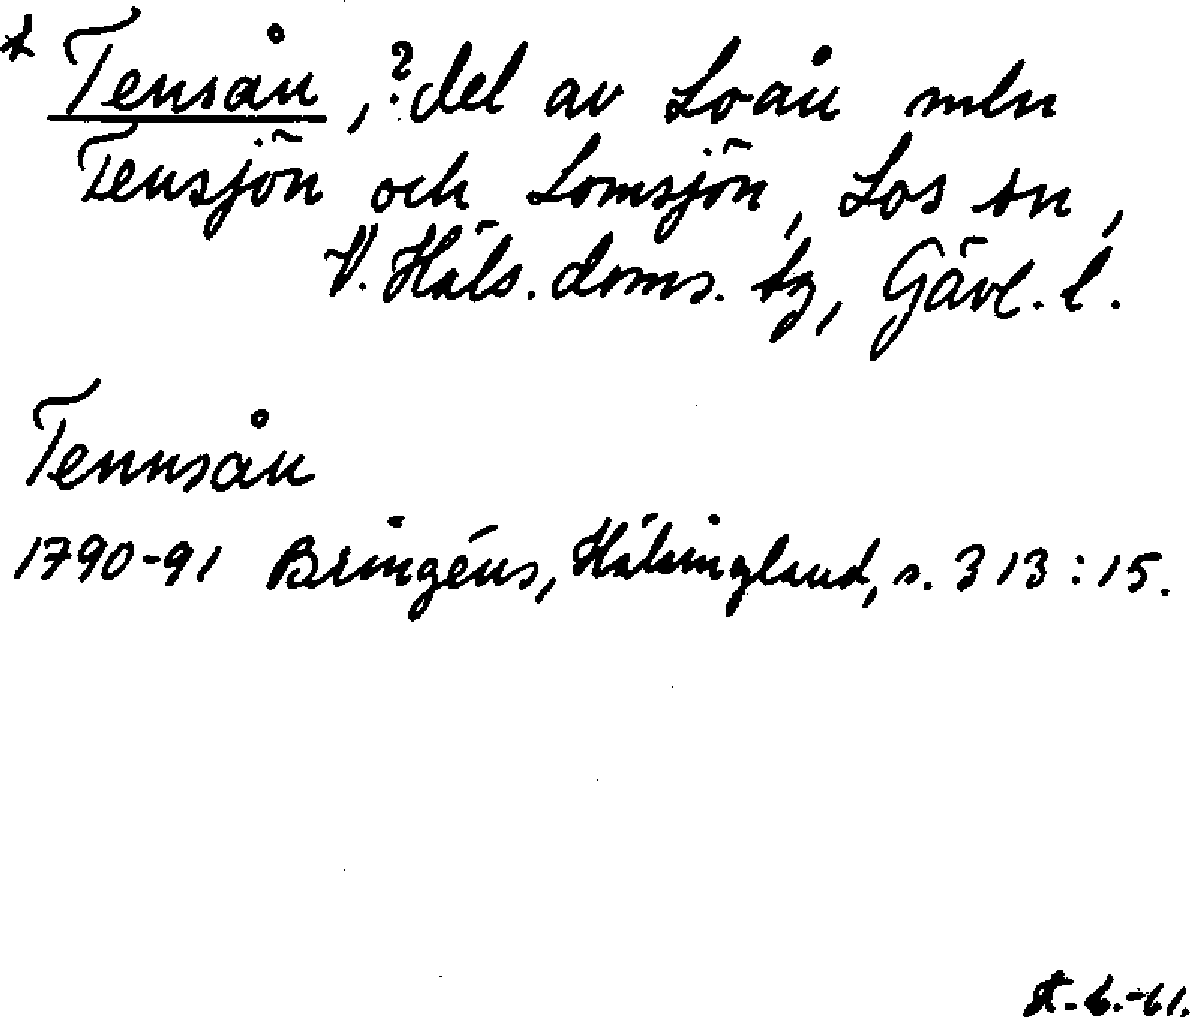 * Tensån, ? del av Loån mln
Tensjön och Lomsjön, Los sn,
V. Häls. doms. tg, Gävl. l.
Tennsån
1790-91 Bringéus, Hälsingland, s. 313:15.